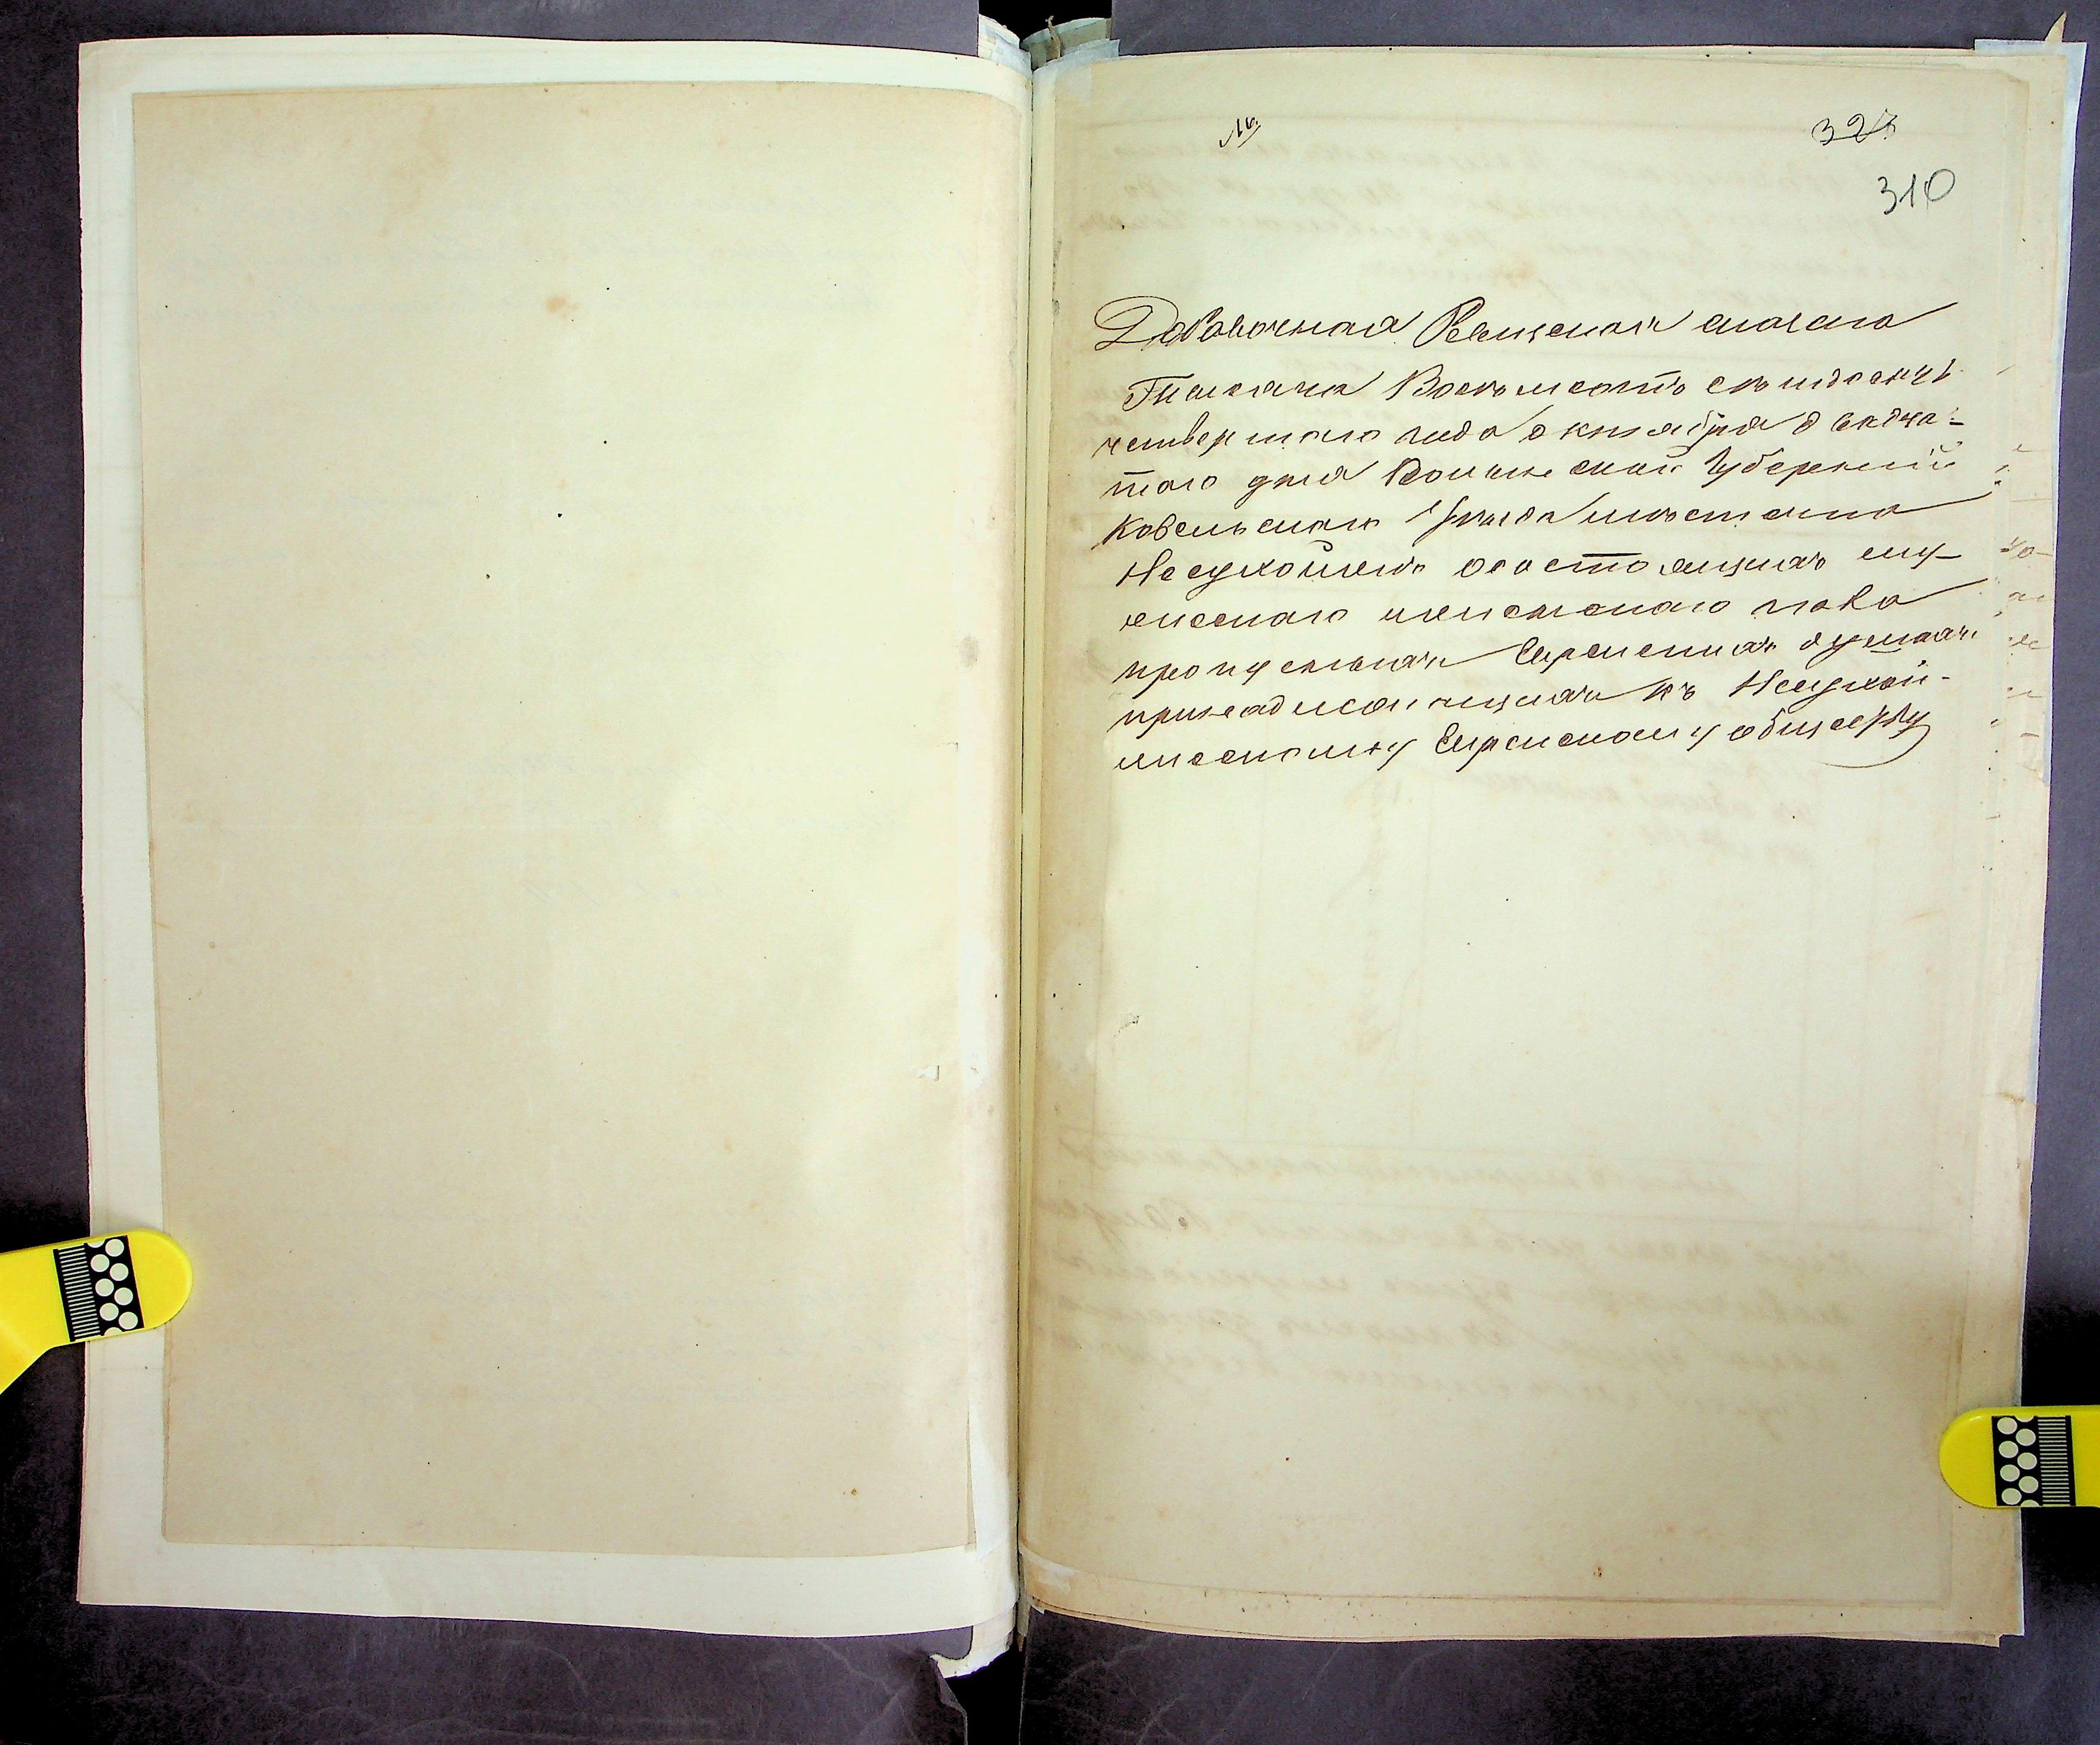 №
327
310
Добавочная Ревизская сказка
Тысяча Восемьсотъ семьдесятъ
четвертаго года октября двадца-
таго дня Волынской Губерніи
Ковельскаго Уѣзда мѣстечка
Несухоижъ о состоящихъ му-
жескаго и женскаго пола
пропускныхъ Еврейскихъ душахъ
принадлежащихъ къ Несухой-
жескому Еврейскому обществу